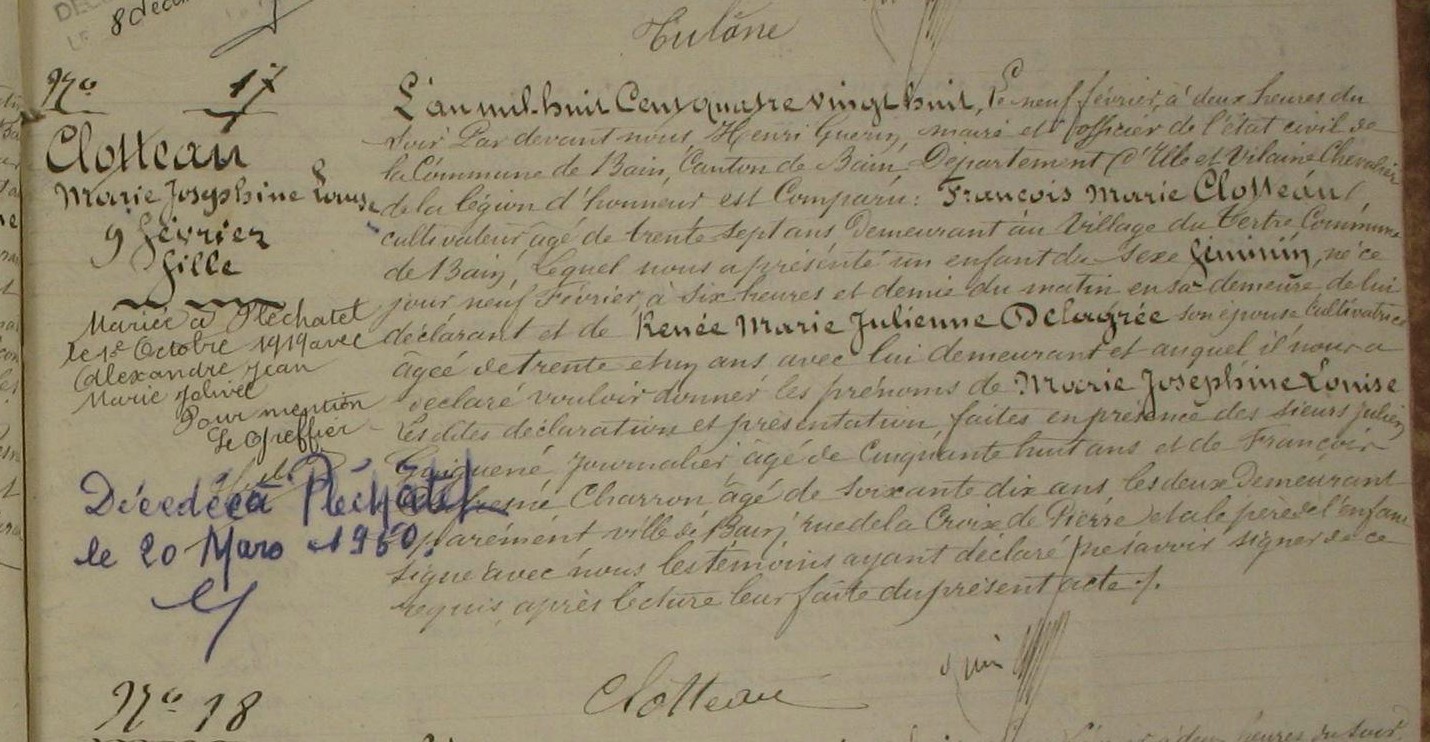 8 déc
Tulâne
N° 17
Clotteau
Marie Josephine Louise
9 Février
fille
Mariée à Pléchatel
le 1er Octobre 1919 avec
Alexandre Jean
Marie Jolivel
Pour mention
Le Greffier
Décédée à Pléchatel
le 20 Mars 1960.
L'an mil-huit Cent quatre vingt huit, le neuf février, à deux heures du
soir Par devant nous, Henri Guerin, maire et officier de l'état civil de
la Commune de Bain, Canton de Bain, Département d'Ille et Vilaine Chevalier
de la légion d'honneur est Comparu: François Marie Clotteau,
cultivateur, âgé de trente sept ans Demeurant au Village du Tertre Commune
de Bain, Lequel nous a présenté un enfant du sexe féminin, né ce
jour neuf Février, à six heures et demie du matin en sa demeure de lui
déclarant et de Renée Marie Julienne Delagrée son épouse cultivatrice
âgée de trente et un ans avec lui demeurant et auquel il nous a
déclaré vouloir donner les prénoms de Marie Joséphine Louise
Les dites déclaration et présentation, faites en présence des sieurs Julien
Guiguené Journalier âgé de Cinquante huit ans et de François
Charron âgé de soixante dix ans, les deux Demeurant
séparément ville de Bain, rue de la Croix de Pierre, et a le père de l'enfant
signé avec nous les témoins ayant déclaré ne savoir signer de ce
requis, après lecture leur faite du présent acte /.
Clotteau
N° 18
à deux heures du soir,